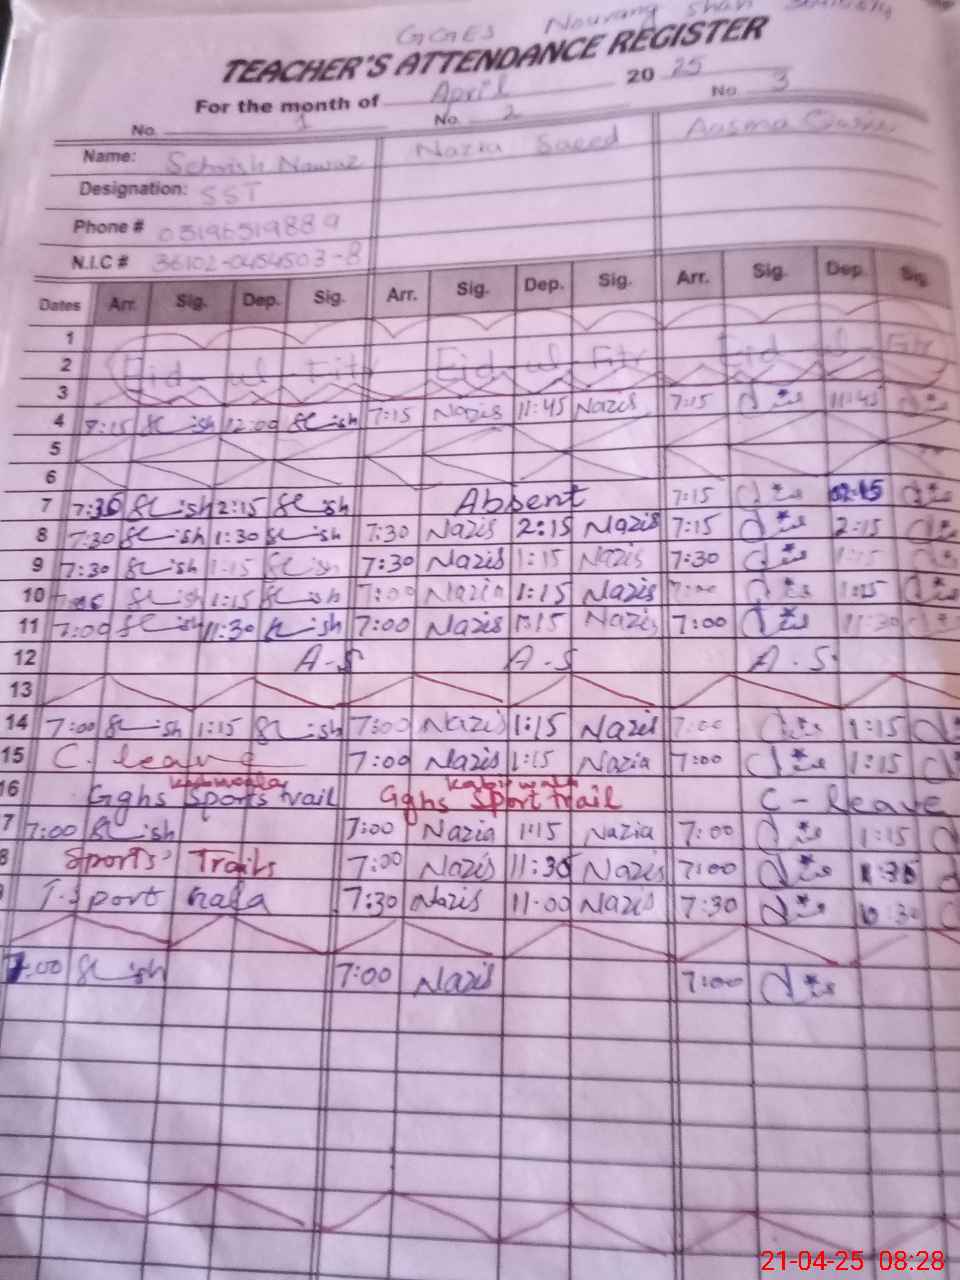 GGES Nourang Shah
TEACHER'S ATTENDANCE REGISTER
For the month of April 2025
No. 1 No 2 No. 3
Name: Sehrish Nawaz Nazia Saeed Aasma
Designation: SST
Phone # 03196519889
N.I.C # 36102-0454503-8
Dates Arr. Sig. Dep. Sig. Arr. Sig. Dep. Sig. Arr. Sig. Dep. Sig.
1
2 Eid-ul-Fitr Eid-ul-Fitr Eid-ul-Fitr
3
4 7:15 12:00 7:15 Nazia 11:45 Nazia 7:15 11:45
5
6
7 7:30 2:15 Absent 7:15 02:15
8 7:30 1:30 7:30 Nazia 2:15 Nazia 7:15 2:15
9 7:30 1:15 7:30 Nazia 1:15 Nazia 7:30 1:15
10 1:15 7:00 Nazia 1:15 Nazia 7:00 1:15
11 7:00 11:30 7:00 Nazia 1:15 Nazia 7:00 11:30
12 A-S A-S A.S.
13
14 7:00 1:15 7:00 Nazia 1:15 Nazia 7:00 1:15
15 C. leave 7:00 Nazia 1:15 Nazia 7:00 1:15
kabirwala kabirwala
16 Gghs Sports trail Gghs Sport trail C-leave
7 7:00 7:00 Nazia 1:15 Nazia 7:00 1:15
8 Sports' Trails 7:00 Nazia 11:30 Nazia 7:00
T.Sport 7:30 Nazia 11:00 Nazia 7:30 10:30
7:00 7:00 Nazia 7:00
21-04-25 08:28